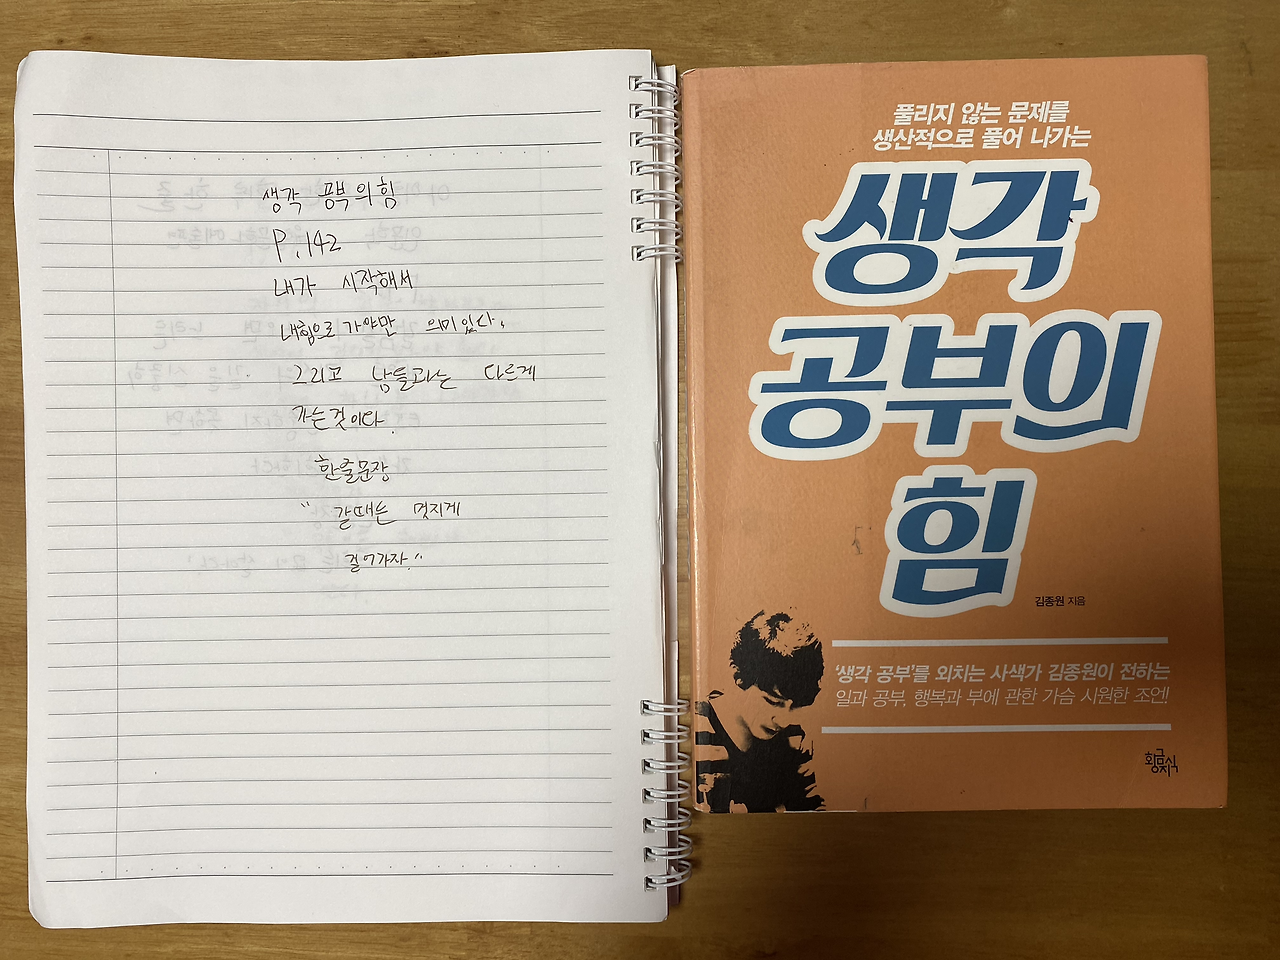 생각 공부의 힘
P.142
내가 시작해서
내힘으로 가야만 의미있다.
그리고 남들과는 다르게
가는것이다.
한줄문장
" 갈때는 멋지게
걸어가자."
풀리지 않는 문제를
생산적으로 풀어 나가는
생각
공부의
힘
김종원 지음
'생각 공부'를 외치는 사색가 김종원이 전하는
일과 공부, 행복과 부에 관한 가슴 시원한 조언!
황금지식